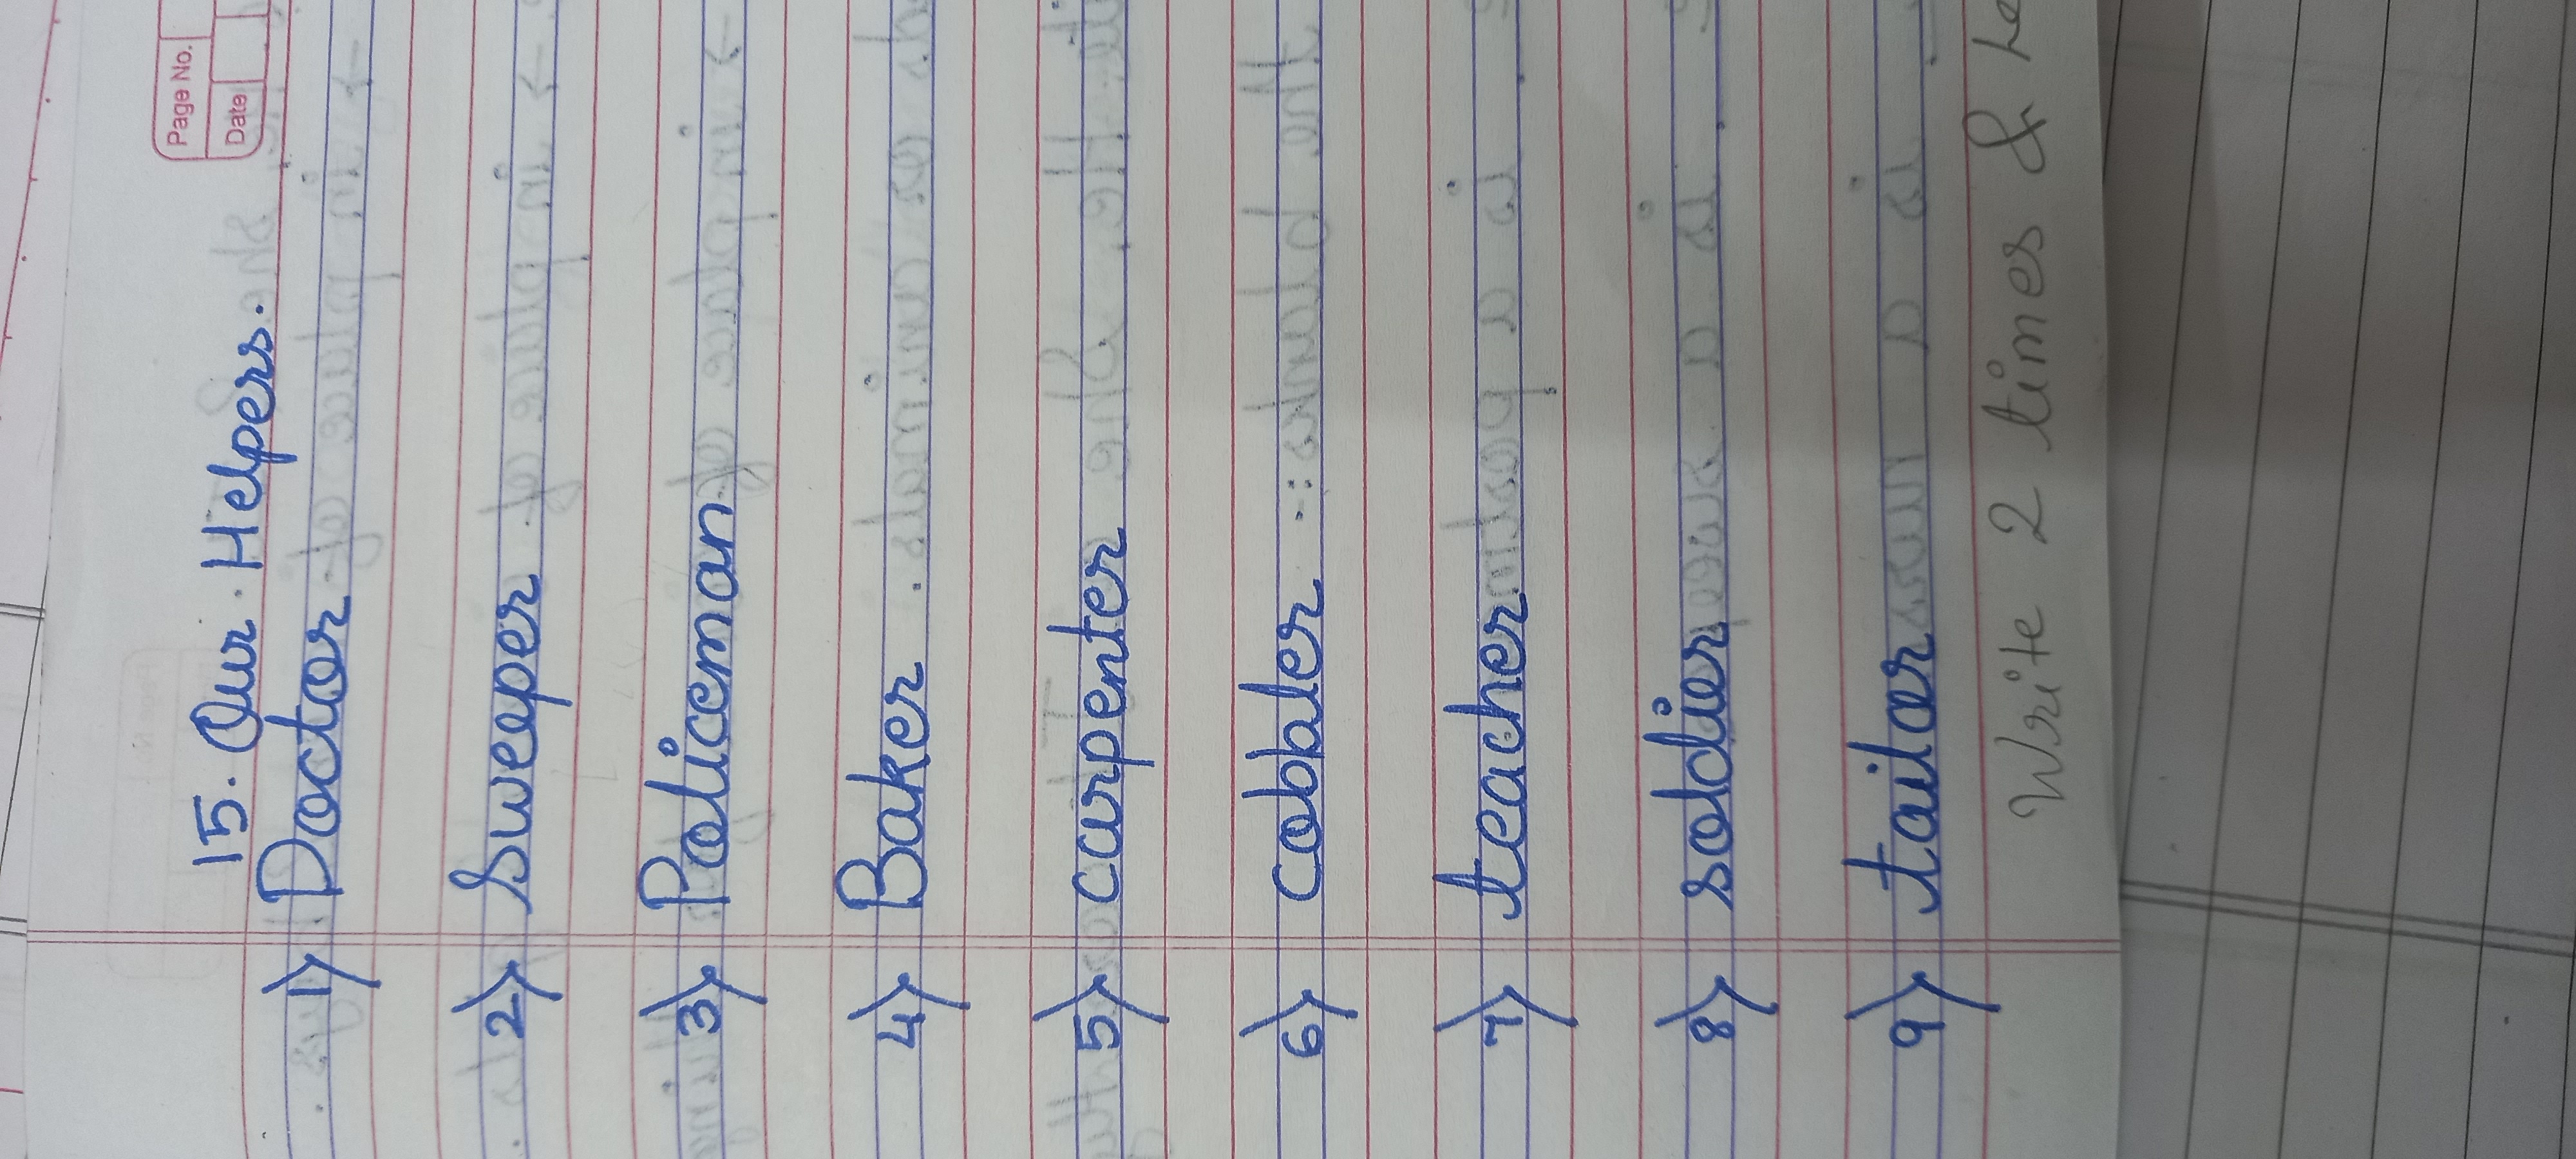 Page No.
Date
15. Our. Helpers.
1) Doctor
2) Sweeper
3) Policeman
4) Baker
5) carpenter
6) cobbler
7) teacher
8) soldier
9) tailor
Write 2 times &